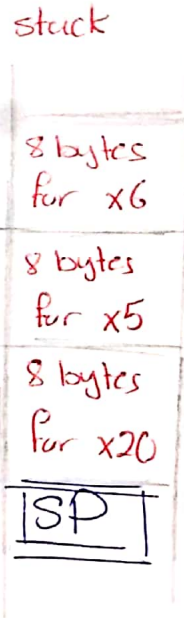 stack
8 bytes
for x6
8 bytes
for x5
8 bytes
for x20
SP